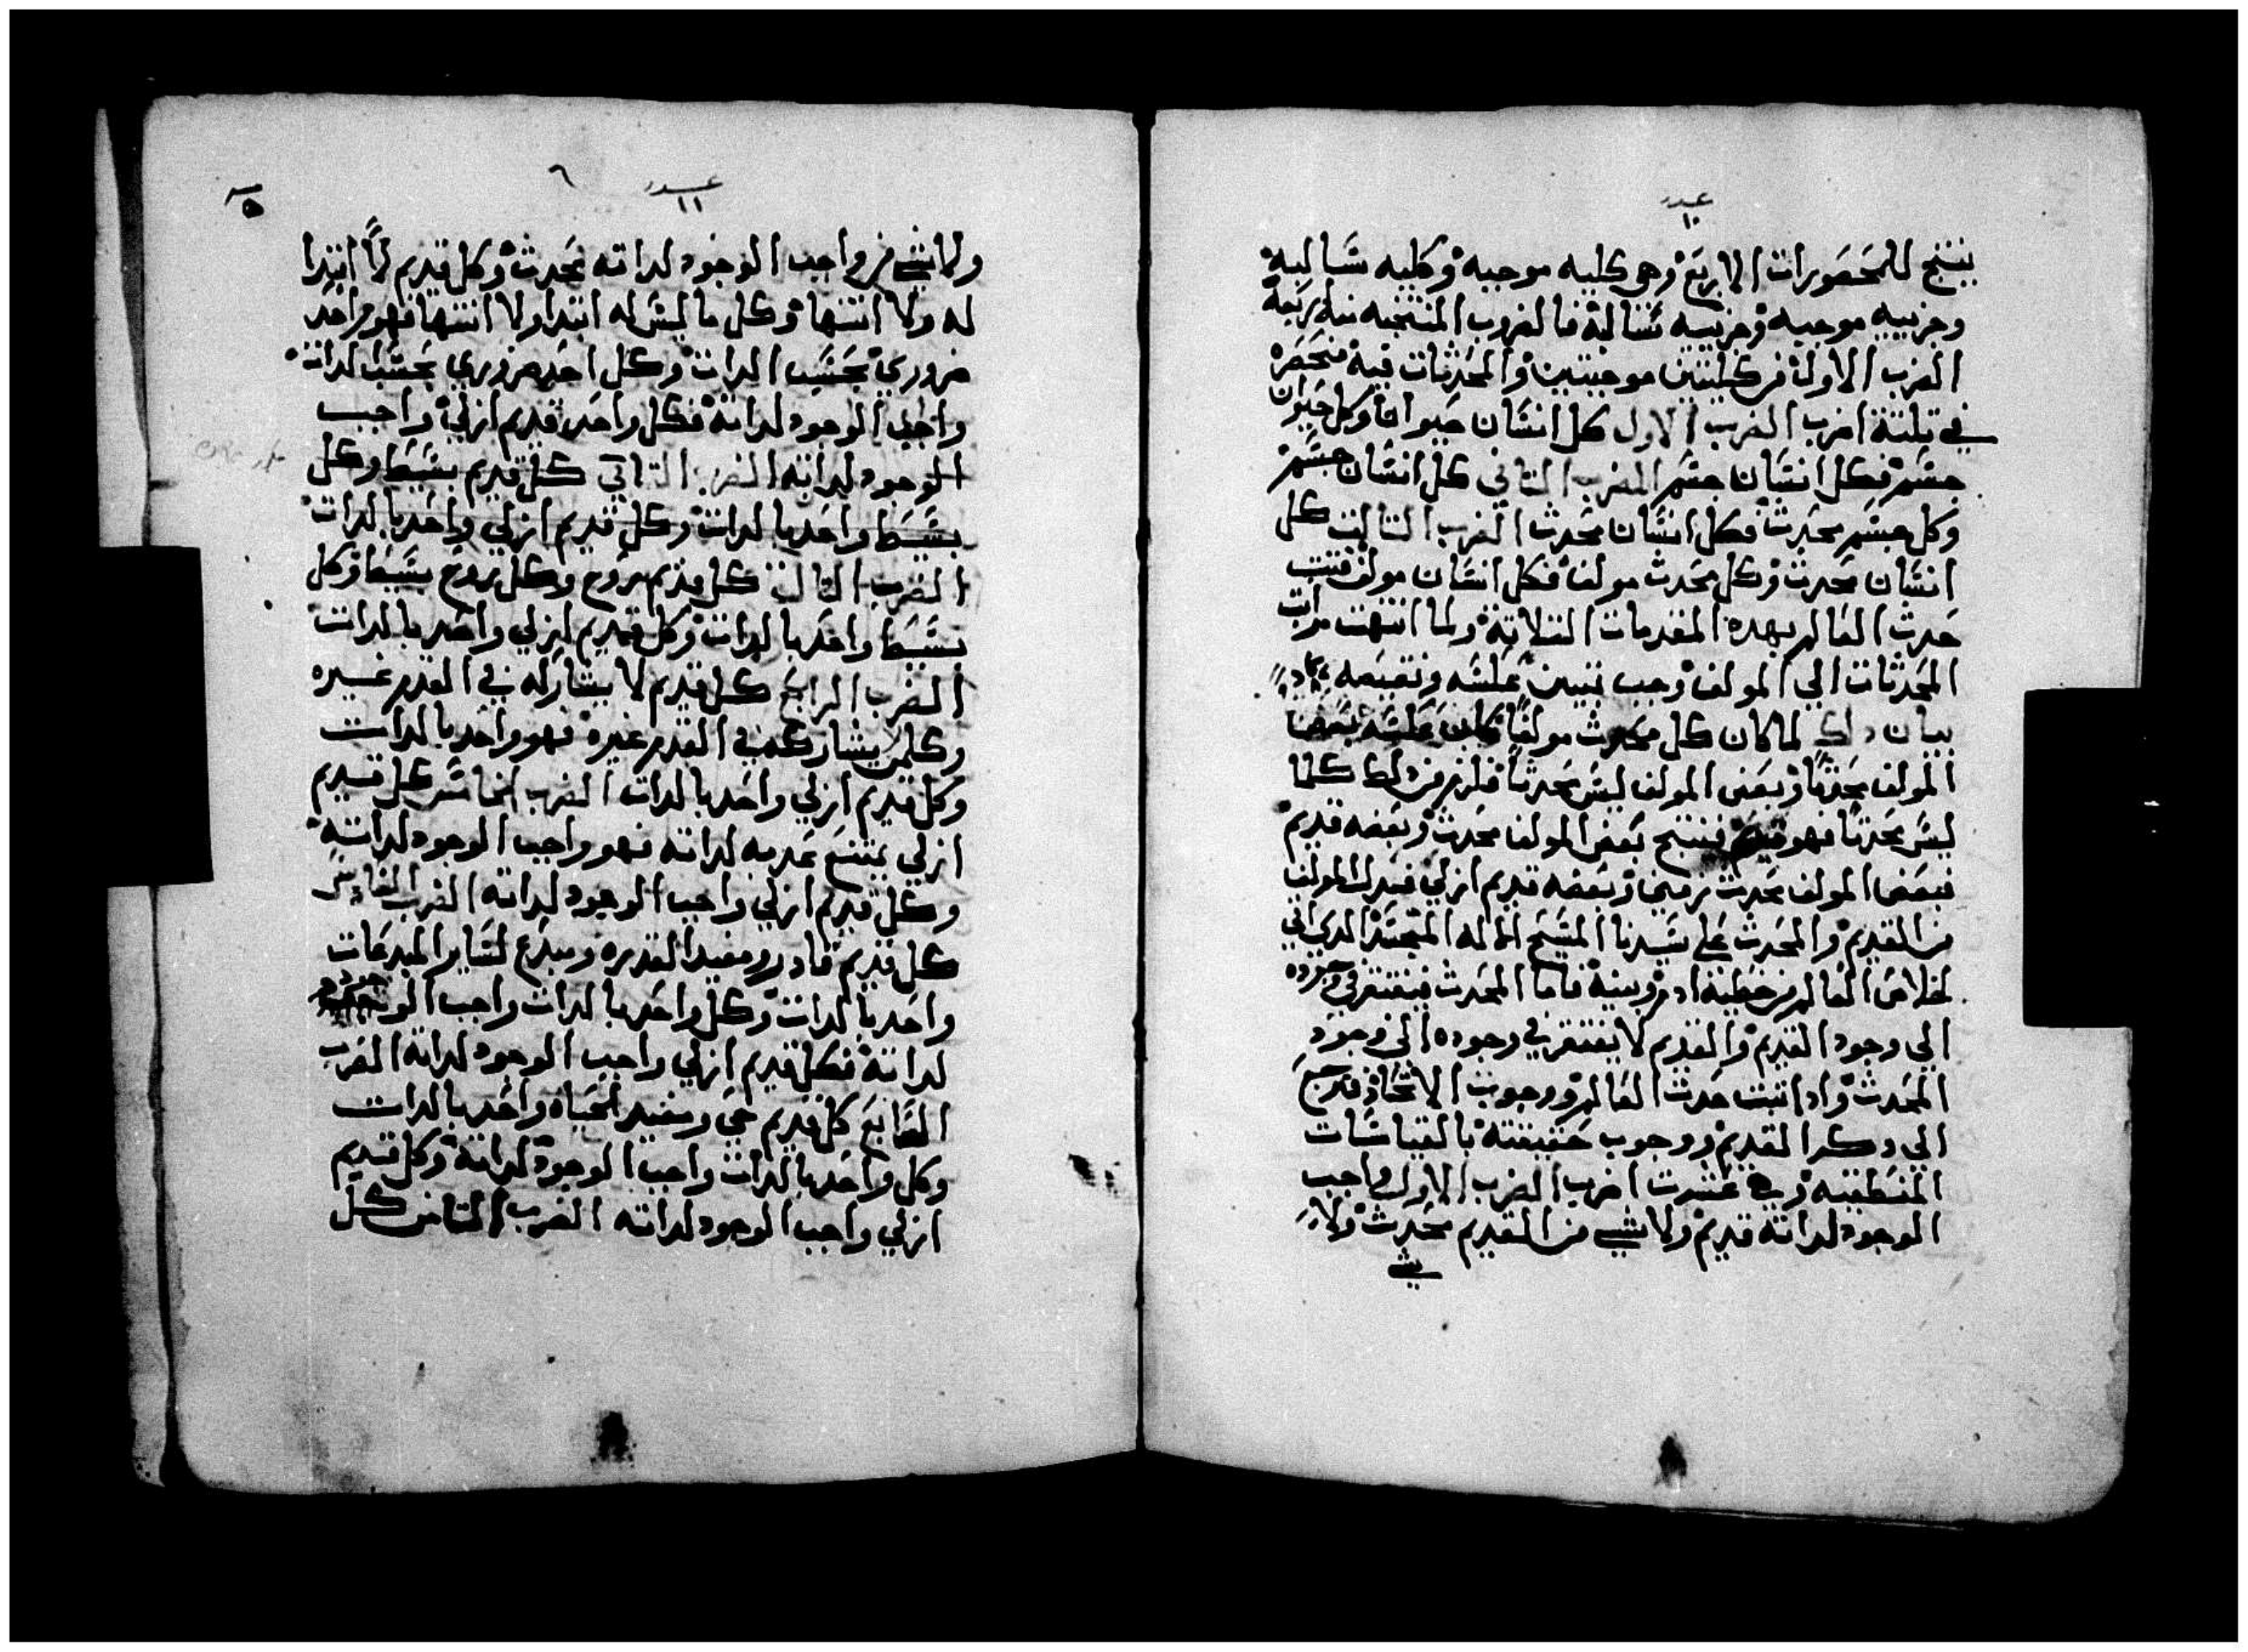 عدد
١٠
ينتج للمحصورات الاربع وهي كليه موجبه وكليه سالبه
وجزييه موجبه وجزييه سالبة فالضروب المنتجه منه اربعة
الضرب الاول من كليتين موجبتين والمحدثات فيه منحصره
في تلتة اضرب الضرب الاول كل انسان حيوان وكل حيوان
جسم فكل انسان جسم الضرب التاني كل انسان جسم
وكل جسم محدث فكل انسان محدث الضرب التالت كل
انسان محدث وكل محدث مولف فكل انسان مولف فتبت
حدث العالم بهده المقدمات التلاتة ولما انتهت مراتب
المحدثات الي المولف وجب تبيين عكسه ونقيضه
بيان دلك لما كان كل محدث مولفا كان عكسه بعض
المولف محدثا وبعض المولف ليس محدثا فلزم من دلك كلما
ليس محدثا فهو قديم فينتج بعض المولف محدث وبعضه قديم
فبعض المولف محدث زمني وبعضه قديم ازلي فيدل المولف
من القديم والمحدث علي سيدنا المسيح الاله المتجسد الدي اتي
لخلاص العالم من خطية ادم وبنيه فاما المحدث فيفتقر في وجوده
الي وجود القديم والقديم لا يفتقر في وجوده الي وجود
المحدث وادا تبت حدث العالم ووجوب الاتحاد فنرجع
الي دكر القديم ووجوب حقيقته بالقياسات
المنطقيه وهي عشرت اضرب الضرب الاول واجب
الوجود لداته قديم ولا شي من القديم محدث ولا
شي
عدد
١١
٦
٥
ولا شي من واجب الوجود لداته محدث وكل قديم لا ابتدا
له ولا انتها وكل ما ليس له ابتدا ولا انتها فهو واحد
ضروري بحسب الدات وكل احد ضروري بحسب الدات
واجب الوجود لداته فكل واحد قديم ازلي واجب
الوجود لداته الضرب التاني كل قديم بسيط وكل
بسيط واحد بالدات وكل قديم ازلي واحد بالدات
الضرب التالت كل قديم روح وكل روح بسيط وكل
بسيط واحد بالدات وكل قديم ازلي واحد بالدات
الضرب الرابع كل قديم لا يشاركه في القدم غيره
وكلمن يشاركه في القدم غيره فهو واحد بالدات
وكل قديم ازلي واحد بالدات الضرب الخامس كل قديم
ازلي يمتنع عدمه لداته فهو واجب الوجود لداته
وكل قديم ازلي واجب الوجود لداته الضرب السادس
كل قديم قادر ومفيد القدره ومبدع لساير المبدعات
واحد بالدات وكل واحد بالدات واجب الوجود
لداته فكل قديم ازلي واجب الوجود لداته الضرب
السابع كل قديم حي ومفيد الحياه واحد بالدات
وكل واحد بالدات واجب الوجود لداته وكل قديم
ازلي واجب الوجود لداته الضرب التامن كل